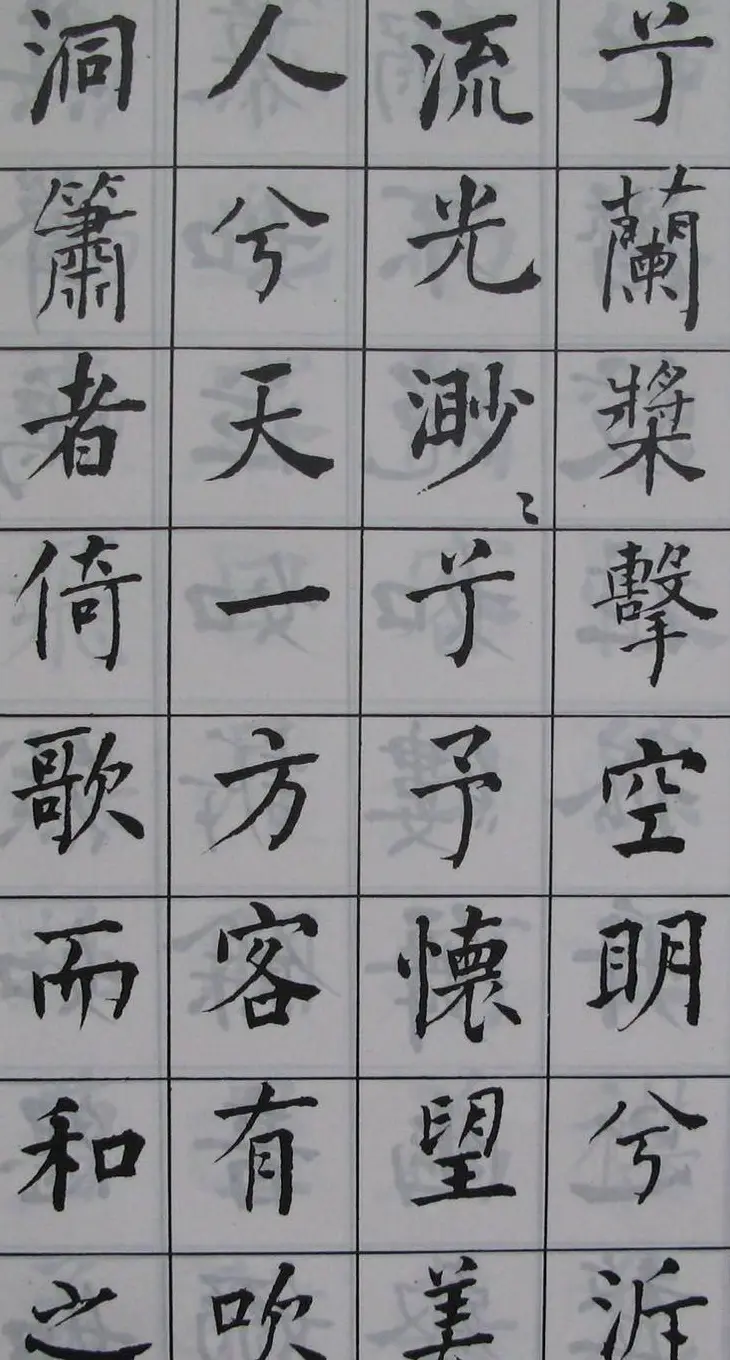 兮蘭槳擊空明兮泝
流光渺〻兮予懷望美
人兮天一方客有吹
洞簫者倚歌而和之